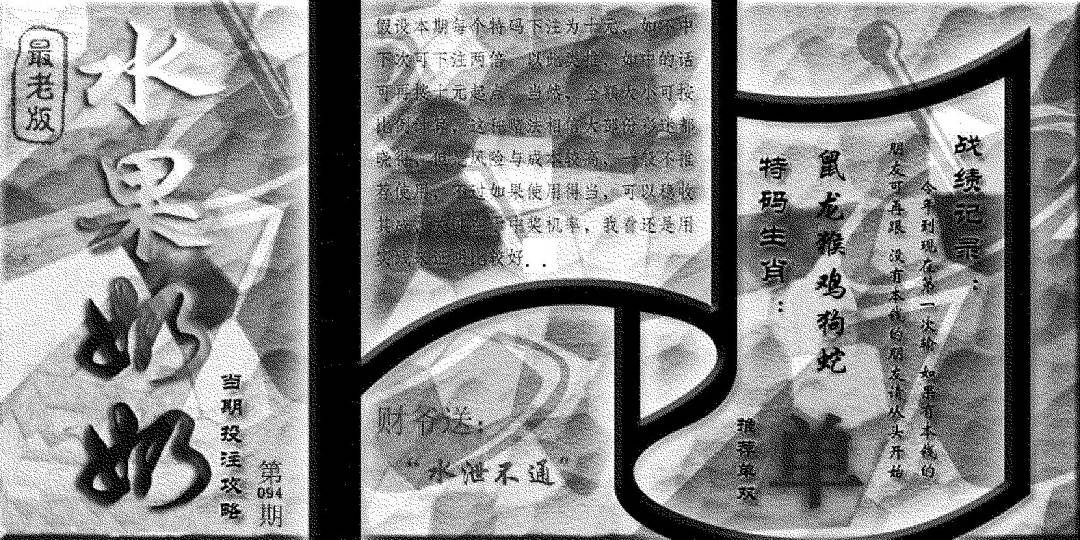 最老版
水果奶奶
当期投注攻略
第
094
期
假设本期每个特码下注为十元，如不中
下次可下注两倍，以此类推，如中的话
可再按十元起点，当然，金额大小可按
风险与成本较高，一般不推
荐使用，不过如果使用得当，可以稳收
中奖机率，我看还是用
较好．．
财爷送：
“水泄不通”
特码生肖：
鼠龙猴鸡狗蛇
推荐单双
单
战绩记录：
今年到现在第一次输 如果有本钱的
朋友可再跟 没有本钱的朋友请从头开始